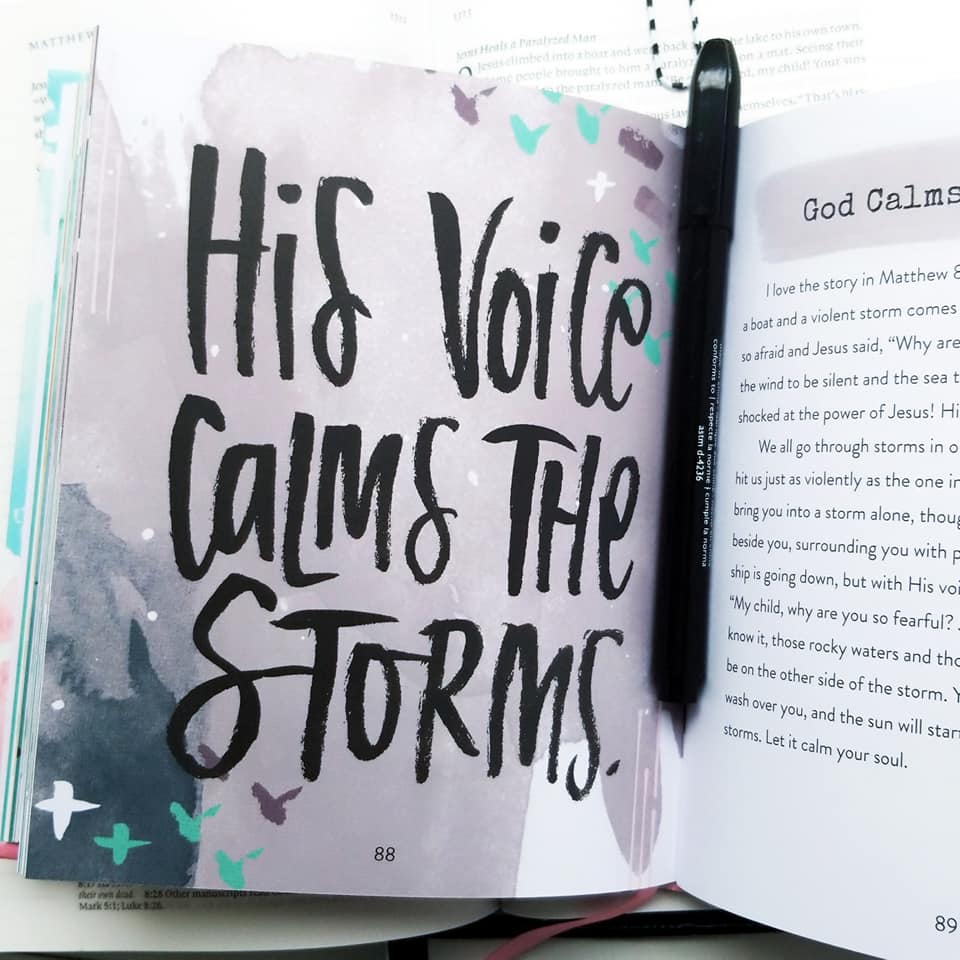 MATTHEW
Jesus Heals a Paralyzed Man
Jesus climbed into a boat and went back the lake to his own town.
some people brought to him a paralyzed on a mat. Seeing their
to the paralyzed man, my child! Your sins
themselves, "That's
His Voice
Calms The
Storms.
88
conforms to | respecte la norme | cumple la norma
astm d-4236
God Calms
I love the story in Matthew 8
a boat and a violent storm comes
so afraid and Jesus said, "Why are
the wind to be silent and the sea t
shocked at the power of Jesus! Hi
We all go through storms in o
hit us just as violently as the one in
bring you into a storm alone, thoug
beside you, surrounding you with p
ship is going down, but with His voi
"My child, why are you so fearful?
know it, those rocky waters and tho
be on the other side of the storm. Y
wash over you, and the sun will star
storms. Let it calm your soul.
89
their own dead. 8:28 Other manuscripts read
Mark 5:1; Luke 8:26.